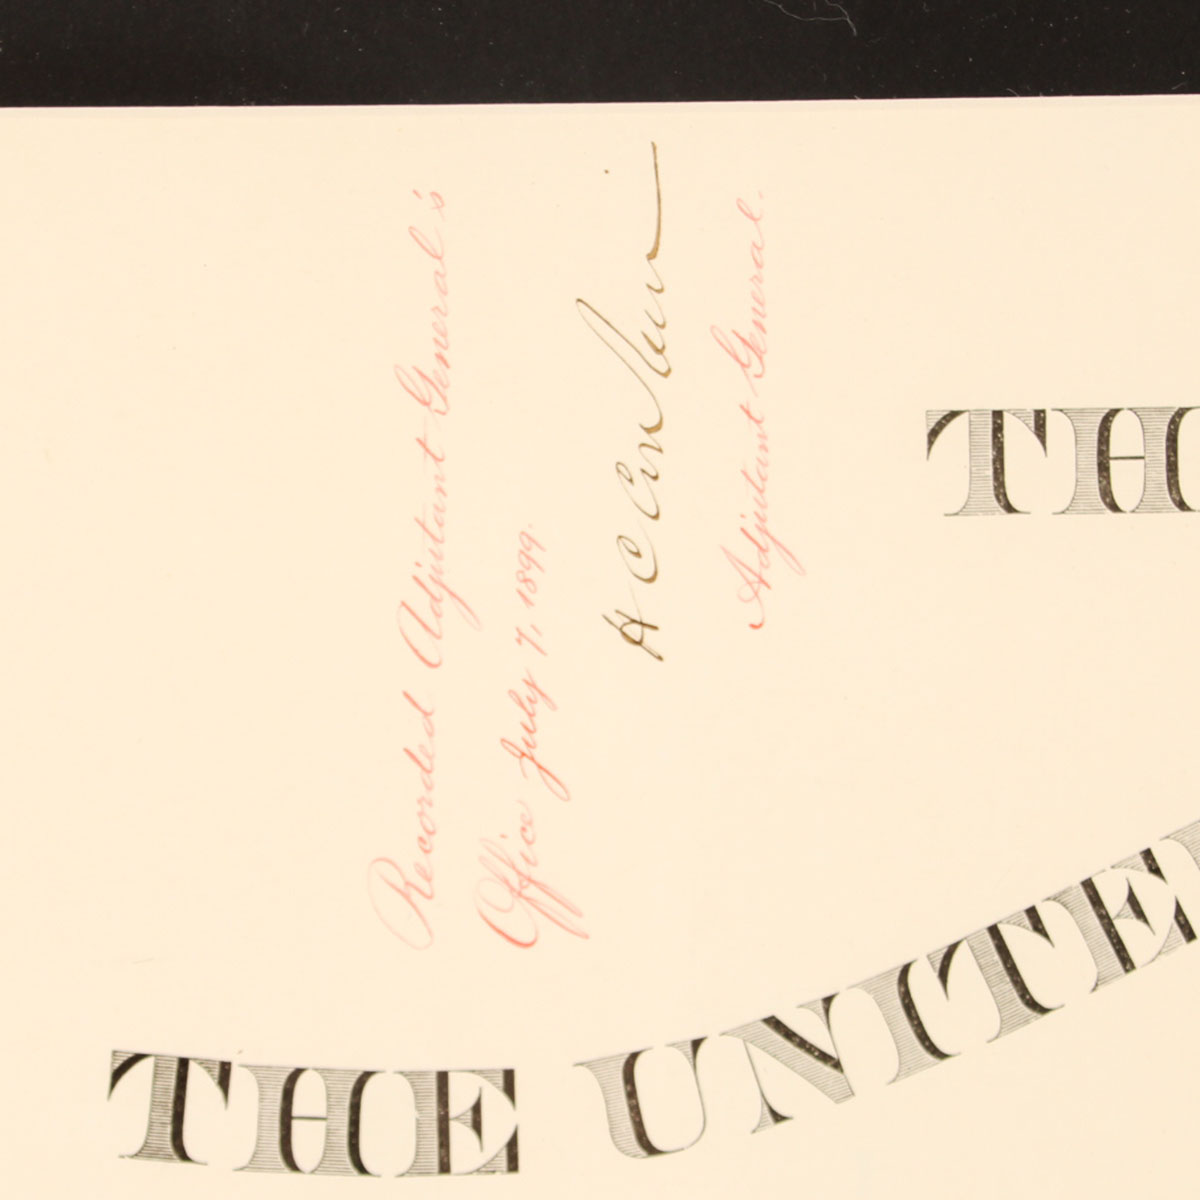 Recorded Adjutant General's
Office July 7, 1899.
H C Corbin
Adjutant General.
TH
THE UNITE